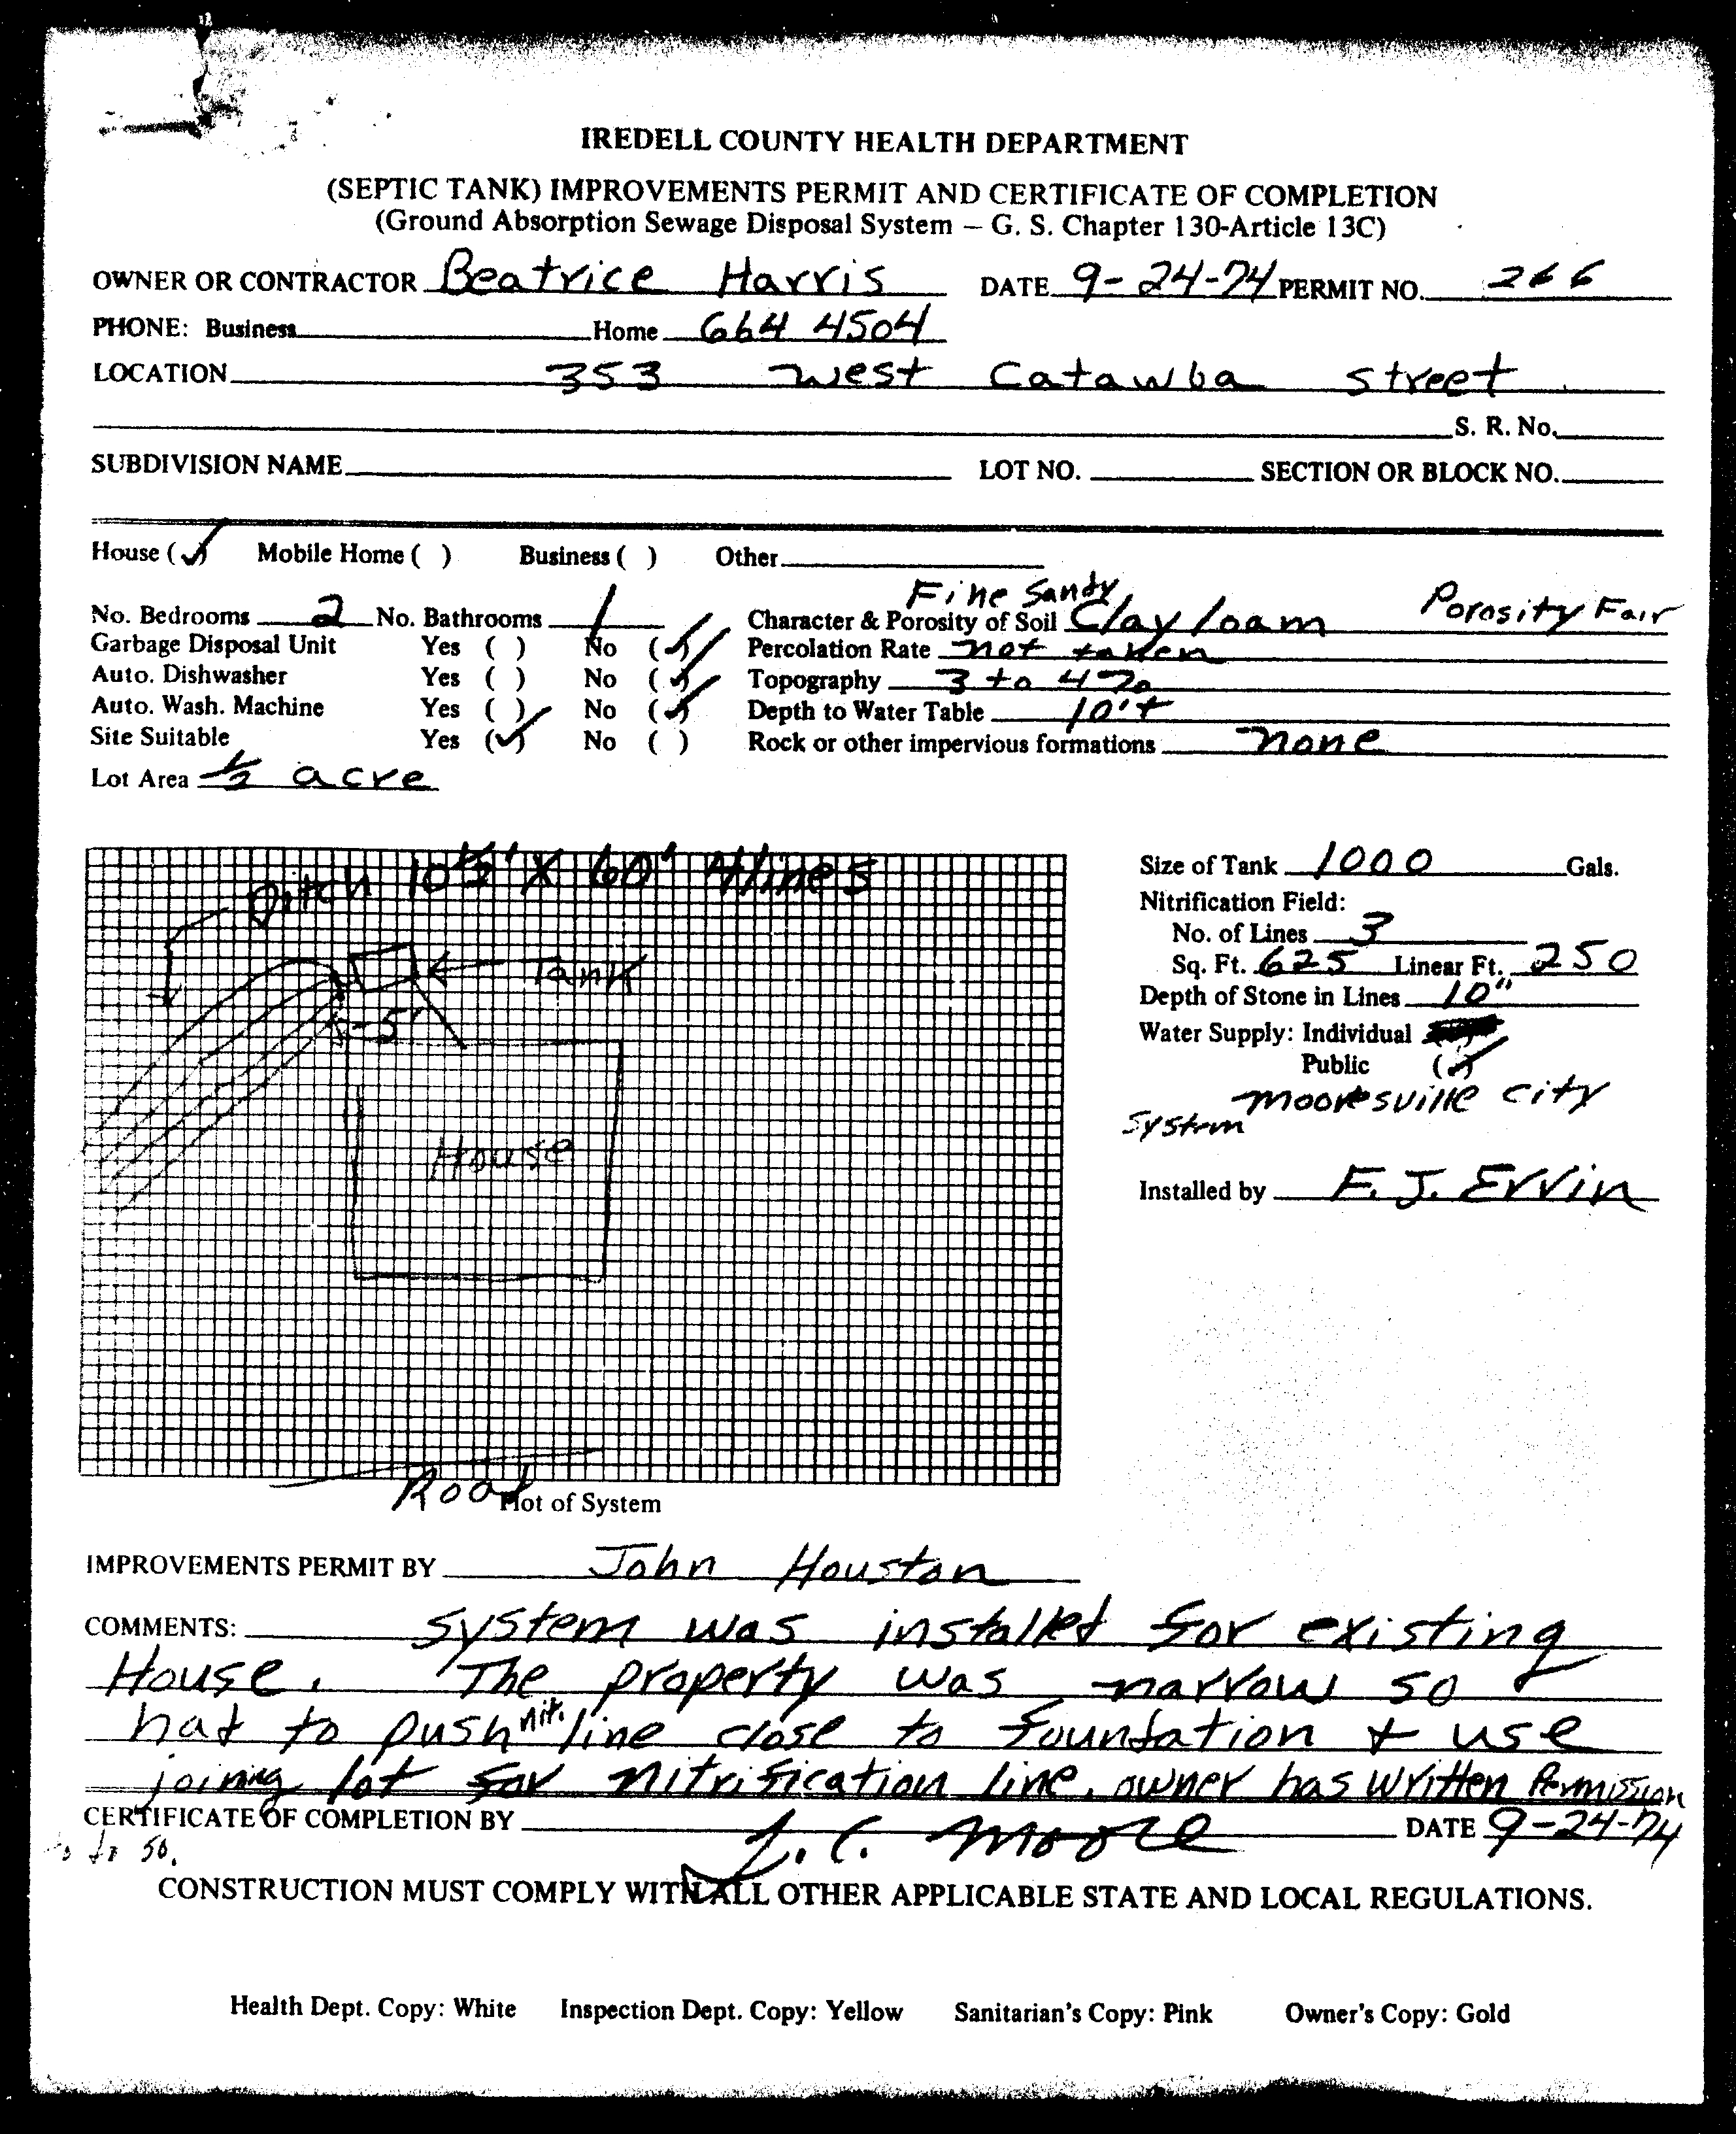 IREDELL COUNTY HEALTH DEPARTMENT
(SEPTIC TANK) IMPROVEMENTS PERMIT AND CERTIFICATE OF COMPLETION
(Ground Absorption Sewage Disposal System – G. S. Chapter 130-Article 13C)
OWNER OR CONTRACTOR Beatrice Harris DATE 9-24-74 PERMIT NO. 266
PHONE: Business Home 664 4504
LOCATION 353 West Catawba Street
S. R. No.
SUBDIVISION NAME LOT NO. SECTION OR BLOCK NO.
House (✓) Mobile Home ( ) Business ( ) Other
Fine Sandy
No. Bedrooms 2 No. Bathrooms 1 Character & Porosity of Soil Clay loam Porosity Fair
Garbage Disposal Unit Yes ( ) No (✓) Percolation Rate not taken
Auto. Dishwasher Yes ( ) No (✓) Topography 3 to 4%
Auto. Wash. Machine Yes ( ) No (✓) Depth to Water Table 10'+
Site Suitable Yes (✓) No ( ) Rock or other impervious formations none
Lot Area 1/2 acre
Ditch 10 1/2' X 60' 4 lines
Tank
5'
House
Road
Plot of System
Size of Tank 1000 Gals.
Nitrification Field:
No. of Lines 3
Sq. Ft. 625 Linear Ft. 250
Depth of Stone in Lines 10"
Water Supply: Individual
Public (✓)
Mooresville City
System
Installed by F. J. Ervin
IMPROVEMENTS PERMIT BY John Houston
COMMENTS: System was installed for existing
House. The property was narrow so
had to push nit. line close to foundation + use
joining lot for nitrification line. owner has written Permission
CERTIFICATE OF COMPLETION BY J. C. Moore DATE 9-24-74
to do so.
CONSTRUCTION MUST COMPLY WITH ALL OTHER APPLICABLE STATE AND LOCAL REGULATIONS.
Health Dept. Copy: White Inspection Dept. Copy: Yellow Sanitarian's Copy: Pink Owner's Copy: Gold